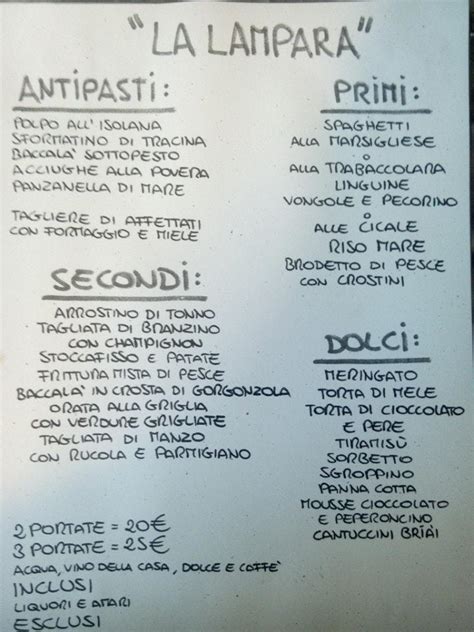 "LA LAMPARA"
ANTIPASTI:
POLPO ALL'ISOLANA
SFORMATINO DI TRACINA
BACCALA' SOTTOPESTO
ACCIUGHE ALLA POVERA
PANZANELLA DI MARE
TAGLIERE DI AFFETTATI
CON FORMAGGIO E MIELE
PRIMI:
SPAGHETTI
ALLA MARSIGLIESE
O
ALLA TRABACCOLARA
LINGUINE
VONGOLE E PECORINO
O
ALLE CICALE
RISO MARE
BRODETTO DI PESCE
CON CROSTINI
SECONDI:
ARROSTINO DI TONNO
TAGLIATA DI BRANZINO
CON CHAMPIGNON
STOCCAFISSO E PATATE
FRITTURA MISTA DI PESCE
BACCALA' IN CROSTA DI GORGONZOLA
ORATA ALLA GRIGLIA
CON VERDURE GRIGLIATE
TAGLIATA DI MANZO
CON RUCOLA E PARMIGIANO
DOLCI:
MERINGATO
TORTA DI MELE
TORTA DI CIOCCOLATO
E PERE
TIRAMISÙ
SORBETTO
SGROPPINO
PANNA COTTA
MOUSSE CIOCCOLATO
E PEPERONCINO
CANTUCCINI BRÌAÌ
2 PORTATE = 20€
3 PORTATE = 25€
ACQUA, VINO DELLA CASA, DOLCE E CAFFE'
INCLUSI
LIQUORI E AMARI
ESCLUSI